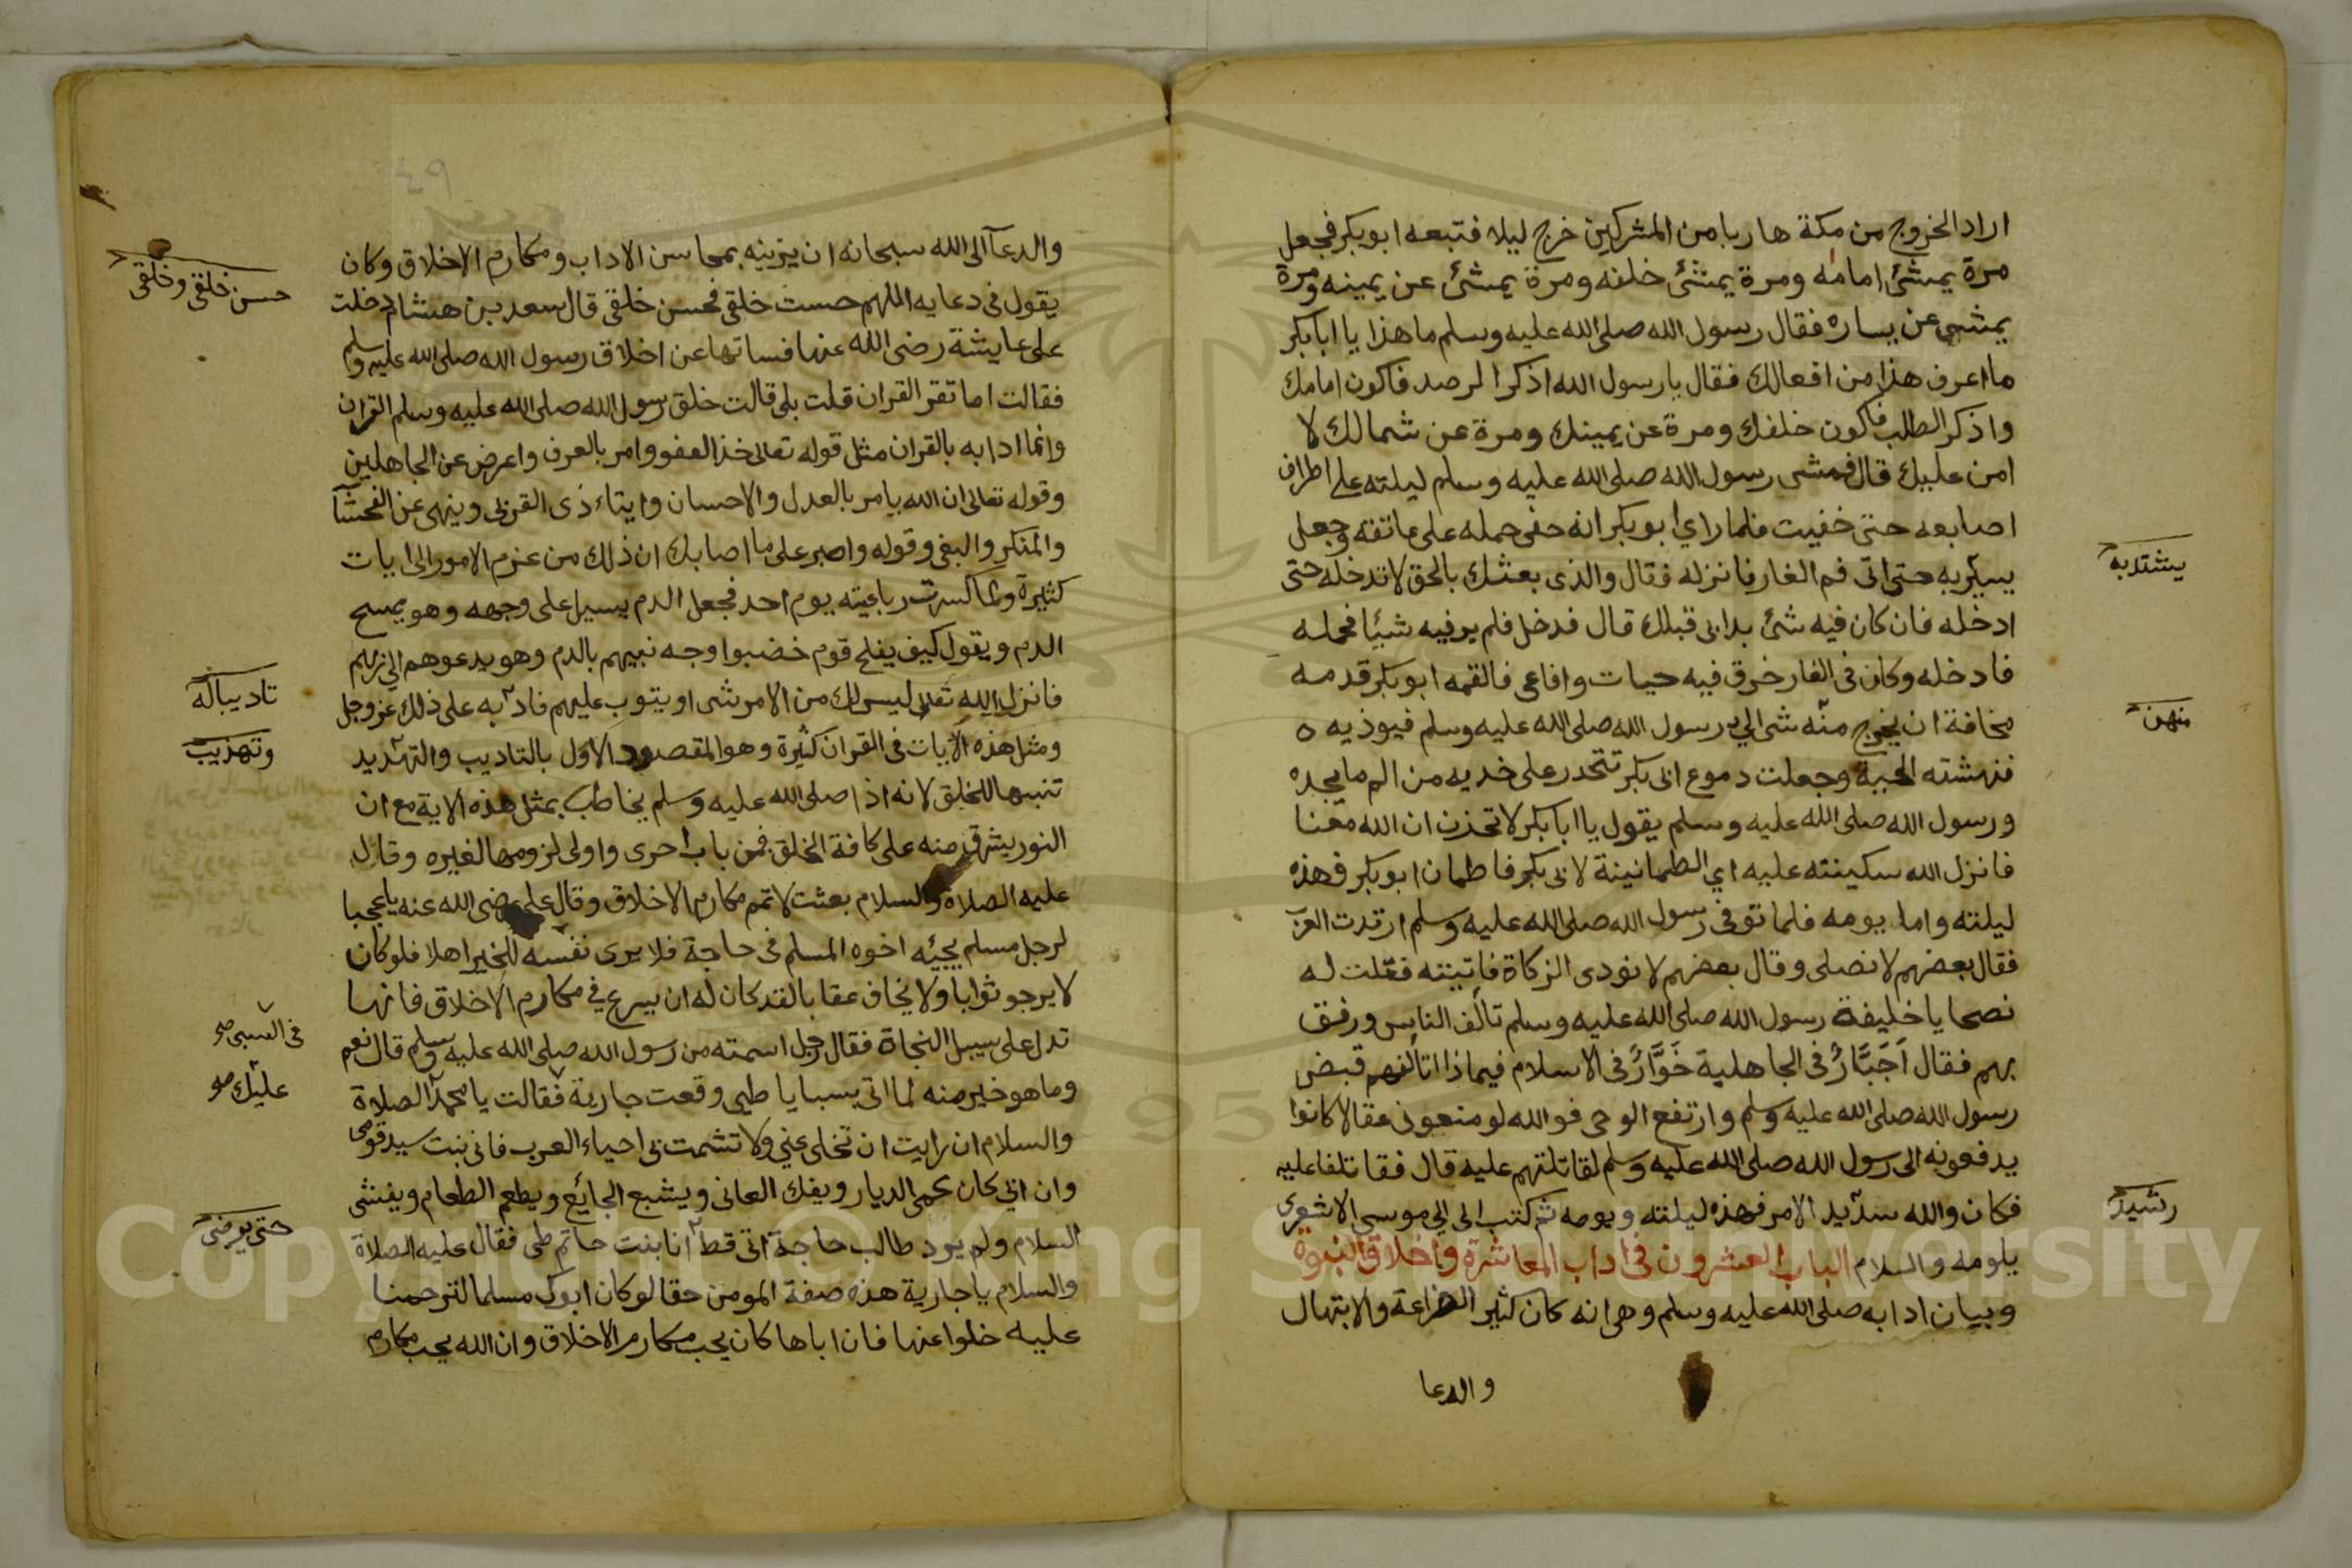 اراد الخروج من مكة هاربا من المشركين خرج ليلا فتبعه ابو بكر فجعل
مرة يمشئ امامه ومرة يمشئ خلفه ومرة يمشئ عن يمينه ومرة
يمشى عن يساره فقال رسول الله صلى الله عليه وسلم ما هذا يا ابا بكر
ما اعرف هذا من افعالك فقال يا رسول الله اذكر الرصد فاكون امامك
واذكر الطلب فاكون خلفك ومرة عن يمينك ومرة عن شمالك لا
امن عليك قال فمشى رسول الله صلى الله عليه وسلم ليلته على اطراف
اصابعه حتى خفيت فلما راي ابو بكر انه حفى حمله على عاتقه وجعل
يسير به حتى اتى فم الغار فانزله فقال والذى بعثك بالحق لا تدخله حتى
يشتد به
ادخله فان كان فيه شئ بدا بى قبلك قال فدخل فلم ير فيه شيئا فحمله
فادخله وكان فى الغار خرق فيه حيات وافاعى فالقمه ابو بكر قدمه
مخافة ان يخرج منه شى الى رسول الله صلى الله عليه وسلم فيوذيه ه
منهن
فنهشته الحية وجعلت دموع ابى بكر تتحدر على خديه من الم ما يجده
ورسول الله صلى الله عليه وسلم يقول يا ابا بكر لا تحزن ان الله معنا
فانزل الله سكينته عليه اي الطمانينة لابى بكر فاطمان ابو بكر فهذه
ليلته واما يومه فلما توفى رسول الله صلى الله عليه وسلم ارتدت العرب
فقال بعضهم لا نصلى وقال بعضهم لا نودى الزكاة فاتيته فقلت له
نصحا يا خليفة رسول الله صلى الله عليه وسلم تالف الناس ورفق
بهم فقال اَجَبَّارٌ فى الجاهلية خَوَّارٌ فى الاسلام فيماذا اتالفهم قبض
رسول الله صلى الله عليه وسلم وارتفع الوحى فوالله لو منعونى عقالا كانوا
يدفعونه الى رسول الله صلى الله عليه وسلم لقاتلتهم عليه قال فقاتلنا عليه
فكان والله سديد الامر فهذه ليلته ويومه ثم كتب الى ابى موسى الاشعرى
رشيد
يلومه والسلام الباب العشرون فى اداب المعاشرة واخلاق النبوة
وبيان ادابه صلى الله عليه وسلم وهى انه كان كثير الضراعة والابتهال
والدعا
٤٩
والدعآ الى الله سبحانه ان يزينه بمحاسن الاداب ومكارم الاخلاق وكان
يقول فى دعايه اللهم حسنت خلقى فحسن خلقى قال سعد بن هشام دخلت
حسن خلقى وخلقى
على عايشة رضى الله عنها فسالتها عن اخلاق رسول الله صلى الله عليه وسلم
فقالت اما تقر القران قلت بلى قالت خلق رسول الله صلى الله عليه وسلم القران
وانما ادابه بالقران مثل قوله تعالى خذ العفو وامر بالعرف واعرض عن الجاهلين
وقوله تعالى ان الله يامر بالعدل والاحسان وايتاء ذى القربى وينهى عن الفحشآ
والمنكر والبغى وقوله واصبر على ما اصابك ان ذلك من عزم الامور الى ايات
كثيرة ولما كسرت رباعيته يوم احد فجعل الدم يسيرا على وجهه وهو يمسح
الدم ويقول كيف يفلح قوم خضبوا وجه نبيهم بالدم وهو يدعوهم الى ربهم
فانزل الله تعالى ليس لك من الامر شى او يتوب عليهم فادبه على ذلك عز وجل
تاديبا له
ومثل هذه الايات فى القران كثيرة وهو المقصود الاول بالتاديب والتهديد
وتهذيب
تنبيها للخلق لانه اذا صلى الله عليه وسلم يخاطب بمثل هذه الاية مع ان
النور يشرق منه على كافة الخلق فمن باب احرى واولى لزومها لغيره وقال
عليه الصلاة والسلام بعثت لاتمم مكارم الاخلاق وقال على رضى الله عنه يا عجبا
لرجل مسلم يجيئه اخوه المسلم فى حاجة فلا يرى نفسه للخير اهلا فلو كان
لا يرجو ثوابا ولا يخاف عقابا لقد كان له ان يسرع في مكارم الاخلاق فانها
تدل على سبيل النجاة فقال رجل اسمعته من رسول الله صلى الله عليه وسلم قال نعم
فى السبى صح
وما هو خير منه لما اتى بسبايا طيى وقعت جارية فقالت يا محمد الصلاة
عليك صح
والسلام ان رايت ان تخلى عني ولا تشمت بى احياء العرب فانى بنت سيد قومى
وان ابى كان يحمى الديار ويفك العانى ويشبع الجائع ويطعم الطعام ويفشى
السلام ولم يرد طالب حاجة اتى قط انا بنت حاتم طى فقال عليه الصلاة
حتى يرضى
والسلام يا جارية هذه صفة المومن حقا لو كان ابوك مسلما لترحمنا
عليه خلوا عنها فان اباها كان يحب مكارم الاخلاق وان الله يحب مكارم
Copyright © King Saud University